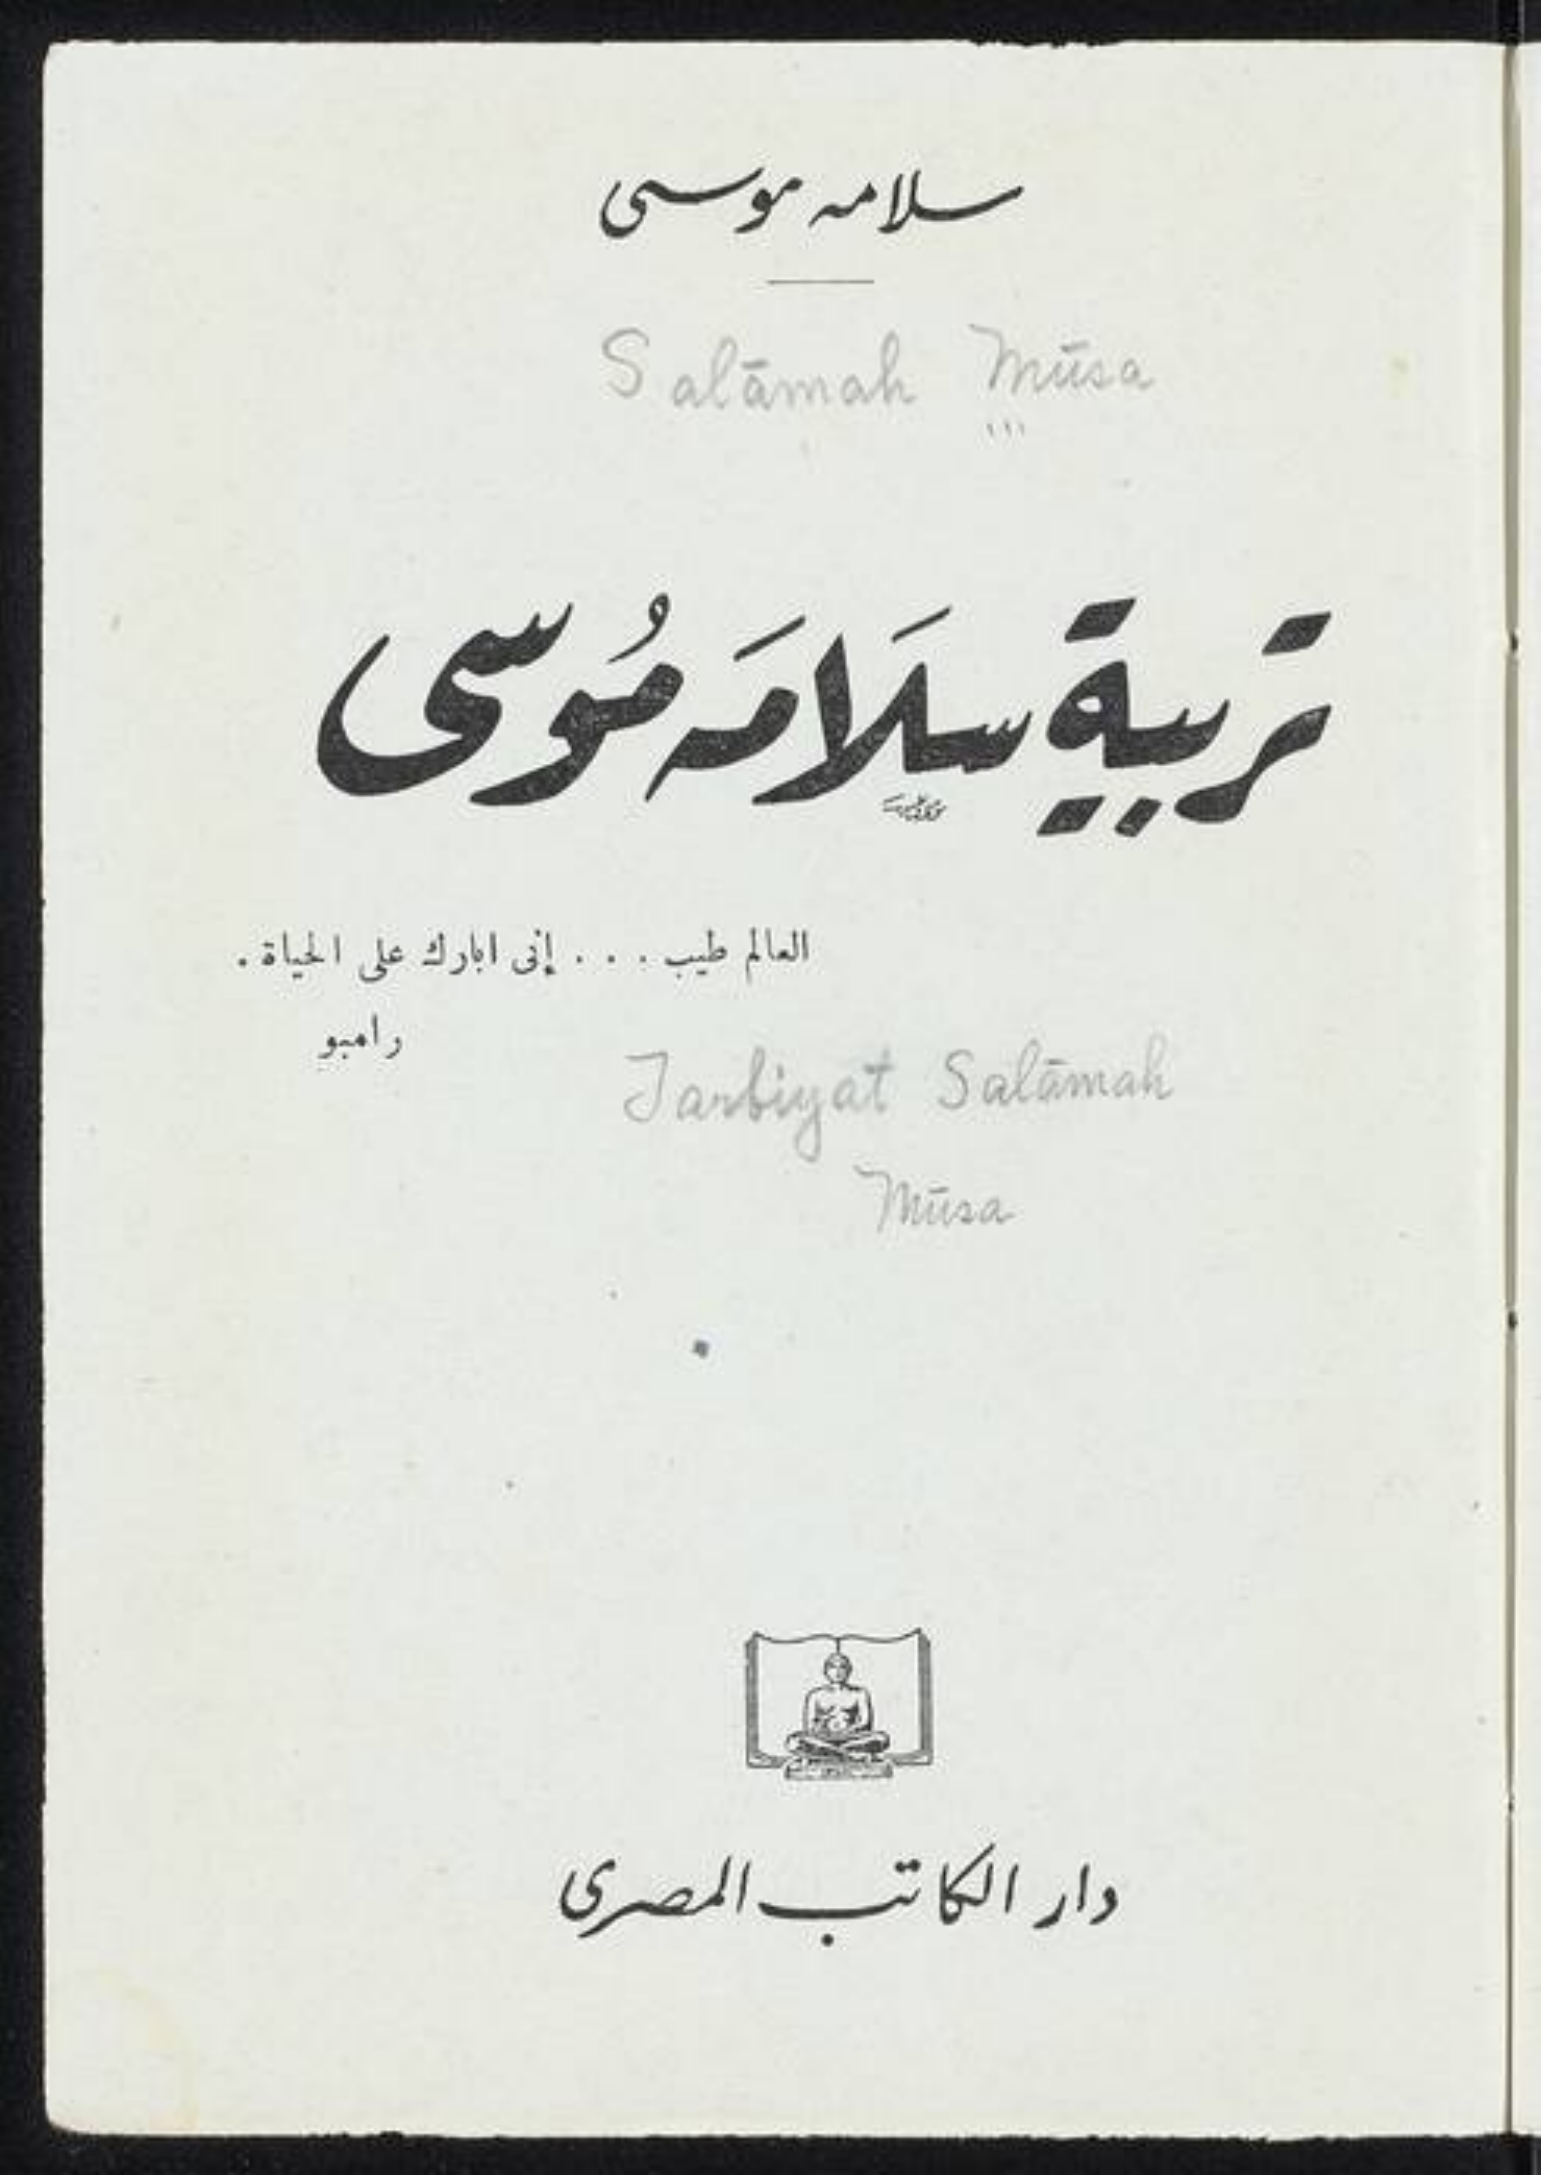 سلامه موسى
Salāmah Mūsa
تربية سَلَامَه مُوسى
العالم طيب . . . إنى ابارك على الحياة .
رامبو
Tarbiyat Salāmah
Mūsa
دار الكاتب المصرى